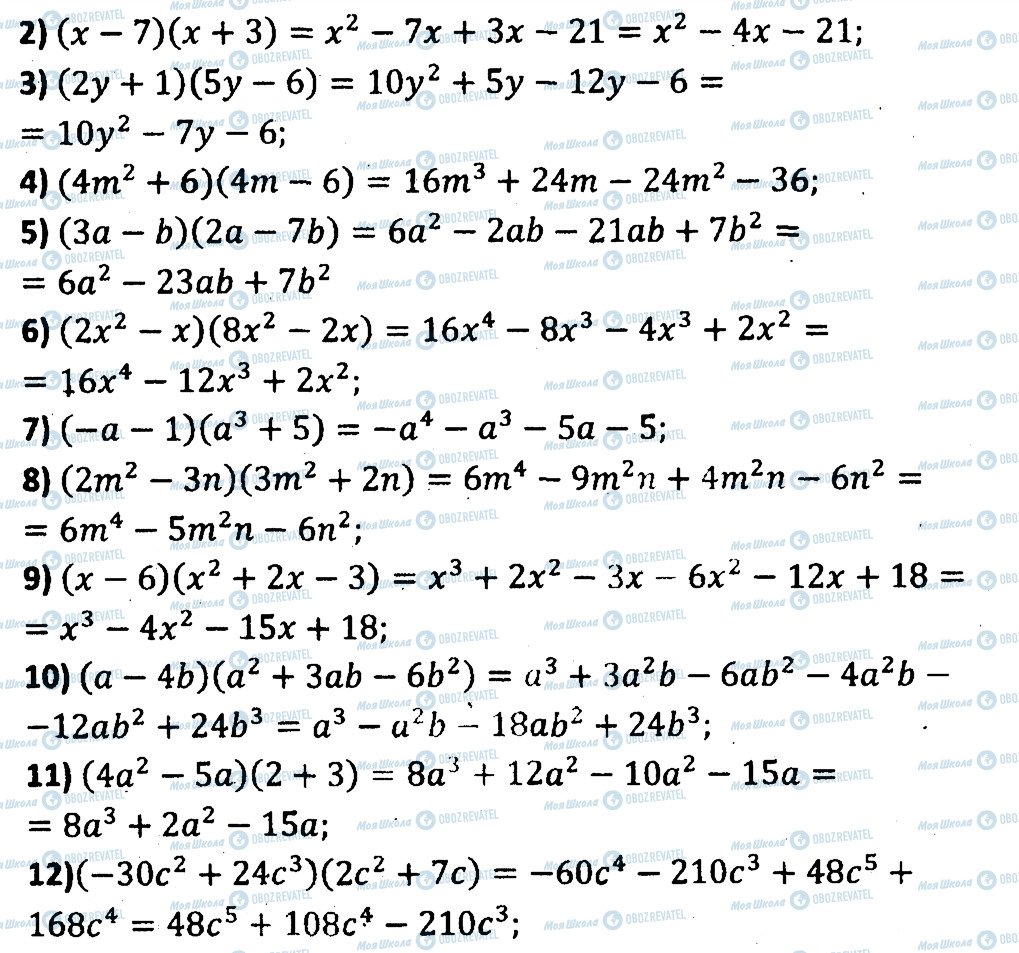 2) (x − 7)(x + 3) = x² − 7x + 3x − 21 = x² − 4x − 21;
3) (2y + 1)(5y − 6) = 10y² + 5y − 12y − 6 =
= 10y² − 7y − 6;
4) (4m² + 6)(4m − 6) = 16m³ + 24m − 24m² − 36;
5) (3a − b)(2a − 7b) = 6a² − 2ab − 21ab + 7b² =
= 6a² − 23ab + 7b²
6) (2x² − x)(8x² − 2x) = 16x⁴ − 8x³ − 4x³ + 2x² =
= 16x⁴ − 12x³ + 2x²;
7) (−a − 1)(a³ + 5) = −a⁴ − a³ − 5a − 5;
8) (2m² − 3n)(3m² + 2n) = 6m⁴ − 9m²n + 4m²n − 6n² =
= 6m⁴ − 5m²n − 6n²;
9) (x − 6)(x² + 2x − 3) = x³ + 2x² − 3x − 6x² − 12x + 18 =
= x³ − 4x² − 15x + 18;
10) (a − 4b)(a² + 3ab − 6b²) = a³ + 3a²b − 6ab² − 4a²b −
−12ab² + 24b³ = a³ − a²b − 18ab² + 24b³;
11) (4a² − 5a)(2 + 3) = 8a³ + 12a² − 10a² − 15a =
= 8a³ + 2a² − 15a;
12)(−30c² + 24c³)(2c² + 7c) = −60c⁴ − 210c³ + 48c⁵ +
168c⁴ = 48c⁵ + 108c⁴ − 210c³;
Моя Школа OBOZREVATEL